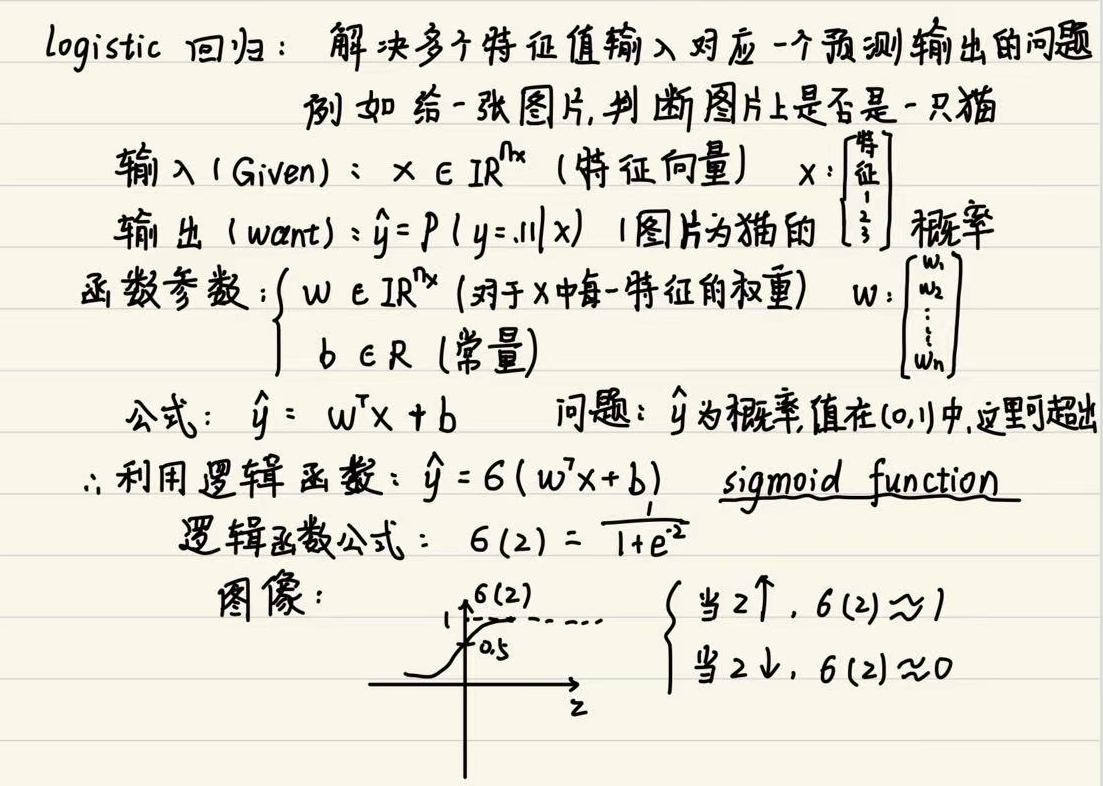 logistic 回归： 解决多个特征值输入对应一个预测输出的问题
例如给一张图片,判断图片上是否是一只猫
输入(Given)： x ∈ ℝⁿˣ (特征向量) x：[特征 1 2 3]
输出(want)：ŷ = P(y=.11|x) (图片为猫的 概率
函数参数：{ w ∈ ℝⁿˣ (对于x中每一特征的权重) w：[w₁ w₂ ⋮ wₙ]
b ∈ R (常量)
公式： ŷ = wᵀx + b 问题： ŷ为概率,值在(0,1)中,这里可超出
∴ 利用逻辑函数：ŷ = σ(wᵀx+b) sigmoid function
逻辑函数公式： σ(z) = 1/(1+e⁻ᶻ)
图像：
σ(z)
1
0.5
z
{ 当z↑, σ(z)≈1
当z↓, σ(z)≈0